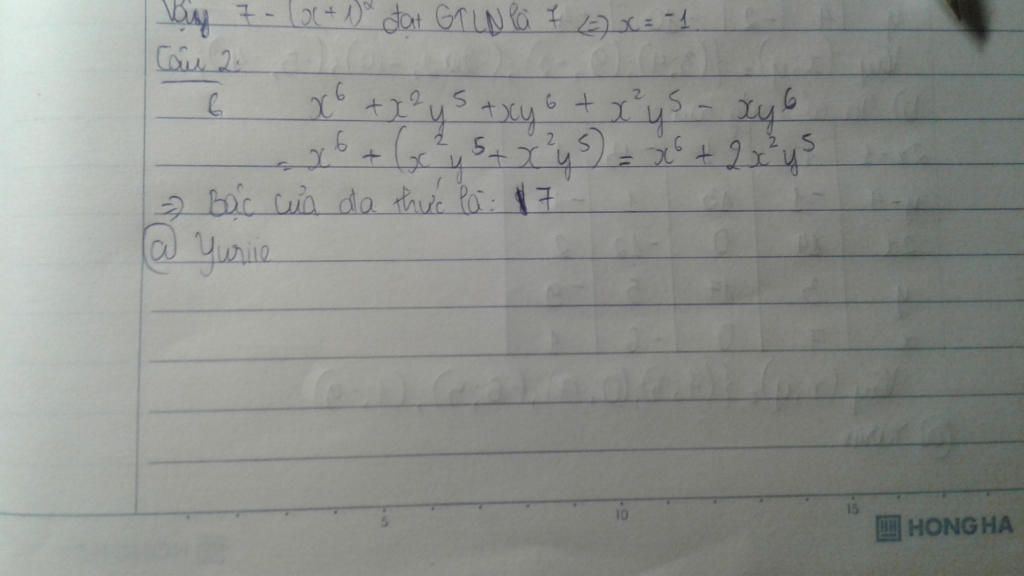 Vậy 7 - (x+1)² đạt GTLN là 7 <=> x = -1
Câu 2:
6 x⁶ + x²y⁵ + xy⁶ + x²y⁵ - xy⁶
= x⁶ + (x²y⁵ + x²y⁵) = x⁶ + 2x²y⁵
=> Bậc của đa thức là: 7
@ Yuriie
5 10 15
HONG HA